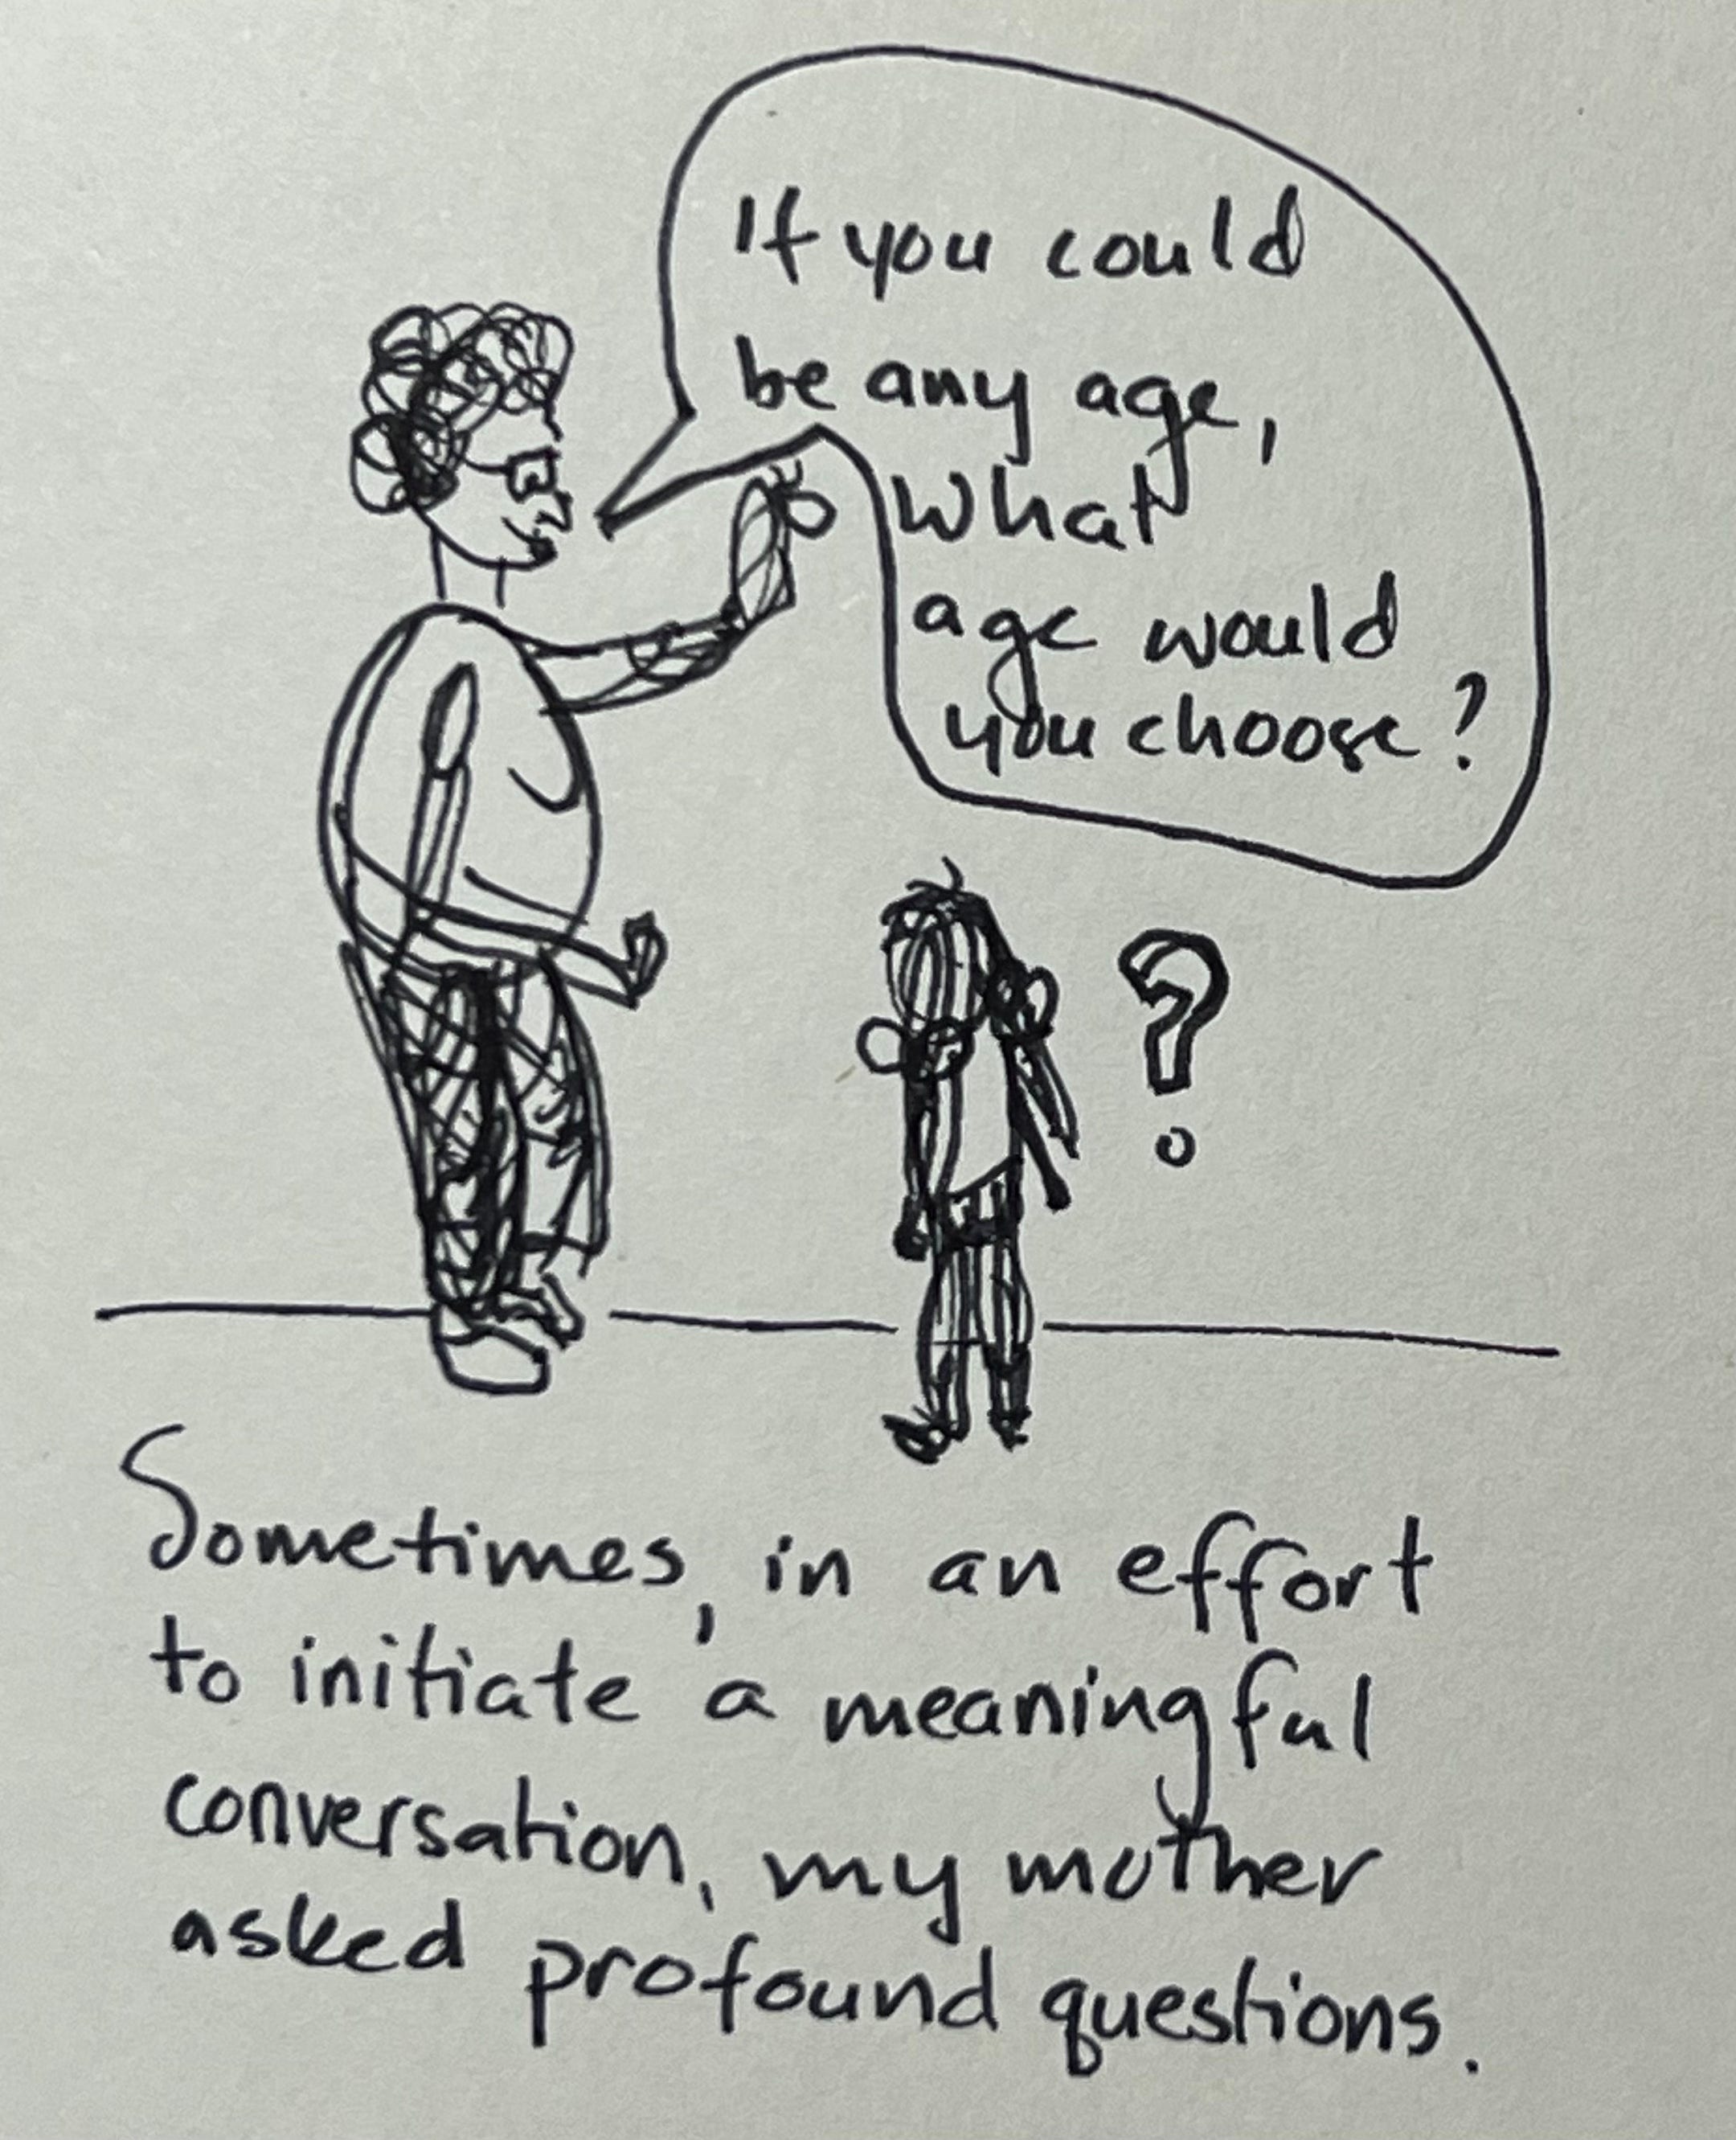 If you could
be any age,
what
age would
you choose?
?
Sometimes, in an effort
to initiate a meaningful
conversation, my mother
asked profound questions.